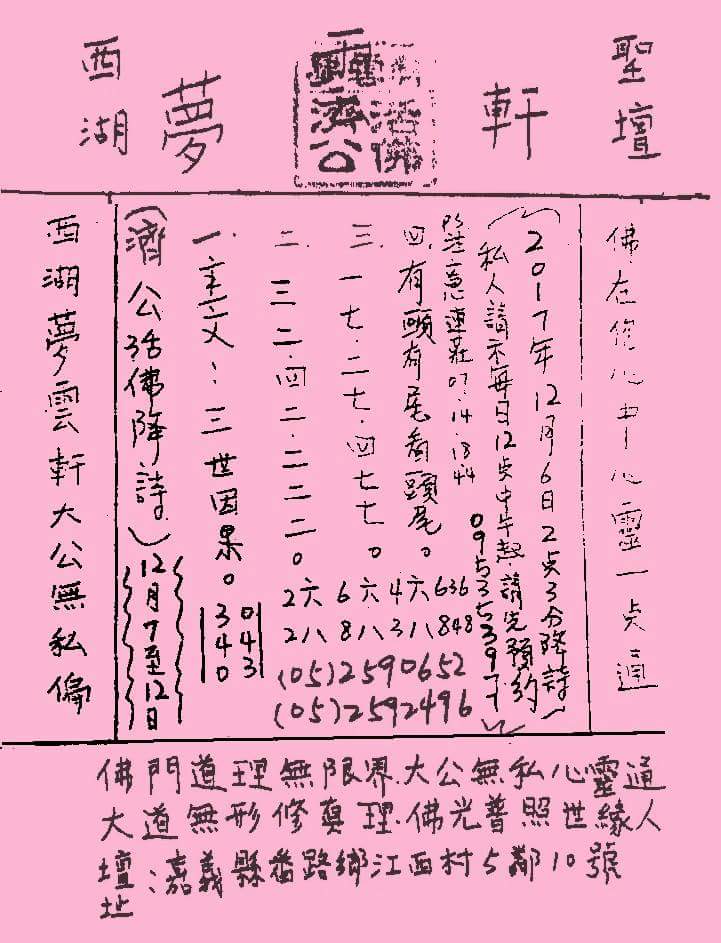 西湖
夢
濟公
活佛
軒
聖壇
西湖夢雲軒大公無私偏
(濟公活佛降詩)12月7至12日
一.主文:三世因果。
340
043
二.三二.四二.二二二。
三.一七.二七.四七七。
四.有頭有尾看頭尾。
PS注意連莊07.14.1844
2六 6六 4六 636
2八 8八 3八 848
(05)2590652
(05)2592496
(私人請示每日12点中午起.請先預約)
(2017年12月6日2点3分降詩)
佛在您心中心靈一点通
佛門道理無限界.大公無私心靈通
大道無形修真理.佛光普照世緣人
壇址:嘉義縣番路鄉江西村5鄰10號